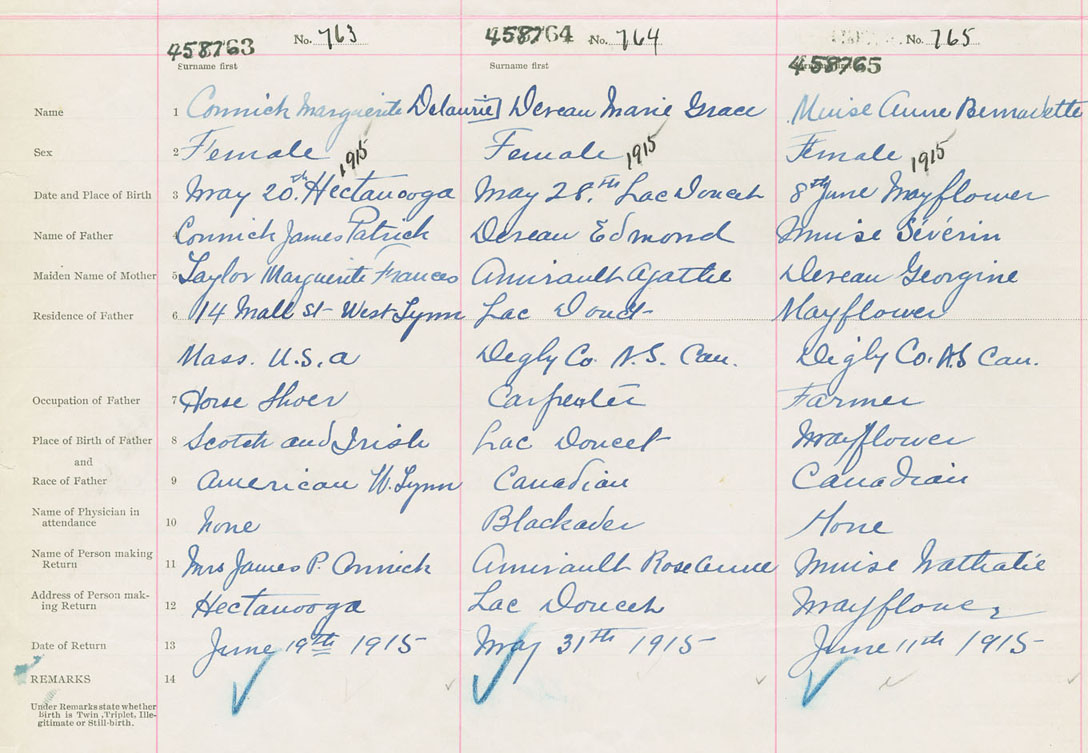 458763 No. 763 458764 No. 764 No. 765
Surname first Surname first 458765
Name 1 Connick Marguerite Delaurie] Deveau Marie Grace Muise Anne Bernadette
Sex 2 Female Female Female
1915 1915 1915
Date and Place of Birth 3 May 20.th Hectanooga May 28.th Lac Doucet 8th June Mayflower
Name of Father 4 Connick James Patrick Deveau Edmond Muise Sévérin
Maiden Name of Mother 5 Taylor Marguerite Frances Amirault Agathe Deveau Georgine
Residence of Father 6 14 Mall St - West Lynn Lac Doucet Mayflower
Mass. U.S.a Digby Co. N.S. Can. Digby Co. N.S Can.
Occupation of Father 7 Horse Shoer Carpenter Farmer
Place of Birth of Father 8 Scotch and Irish Lac Doucet Mayflower
and
Race of Father 9 American W. Lynn Canadian Canadian
Name of Physician in
attendance 10 none Blackader None
Name of Person making
Return 11 Mrs James P. Connick Amirault Rose Anne Muise Nathalie
Address of Person mak-
ing Return 12 Hectanooga Lac Doucet Mayflower
Date of Return 13 June 19th 1915 May 31th 1915 June 11th 1915
REMARKS 14
Under Remarks state whether
Birth is Twin, Triplet, Ille-
gitimate or Still-birth.